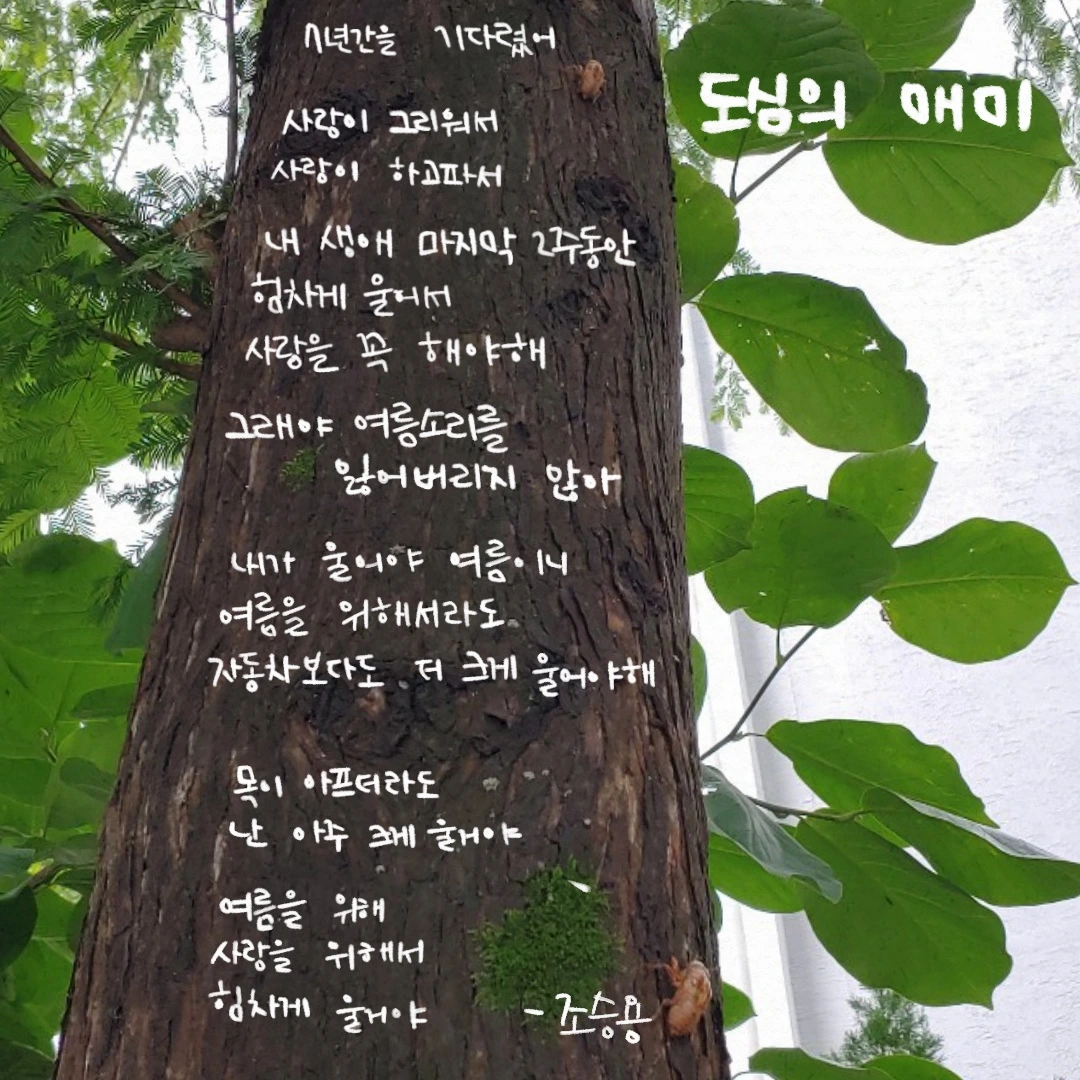 도심의 매미
7년간을 기다렸어
사랑이 그리워서
사랑이 하고파서
내 생애 마지막 2주동안
힘차게 울어서
사랑을 꼭 해야해
그래야 여름소리를
잃어버리지 않아
내가 울어야 여름이니
여름을 위해서라도
자동차보다도 더 크게 울어야해
목이 아프더라도
난 아주 크게 울거야
여름을 위해
사랑을 위해서
힘차게 울거야
- 조승용